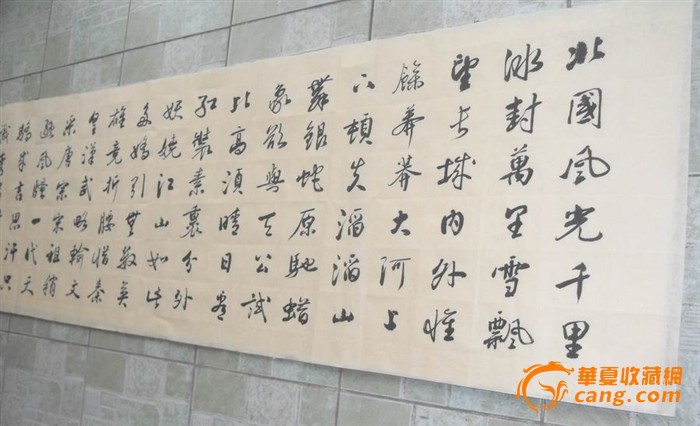 北國风光千里
冰封萬里雪飄
望长城内外惟
餘莽莽大河上
下頓失滔滔山
舞銀蛇原馳蜡
象欲與天公試
比高須晴日看
紅裝素裹分外
妖嬈江山如此
多嬌引無數英
雄竞折腰惜秦
皇漢武略輸文
采唐宗宋祖稍
风騷一代天
驕成吉思汗只
識彎
華夏收藏網
cang.com